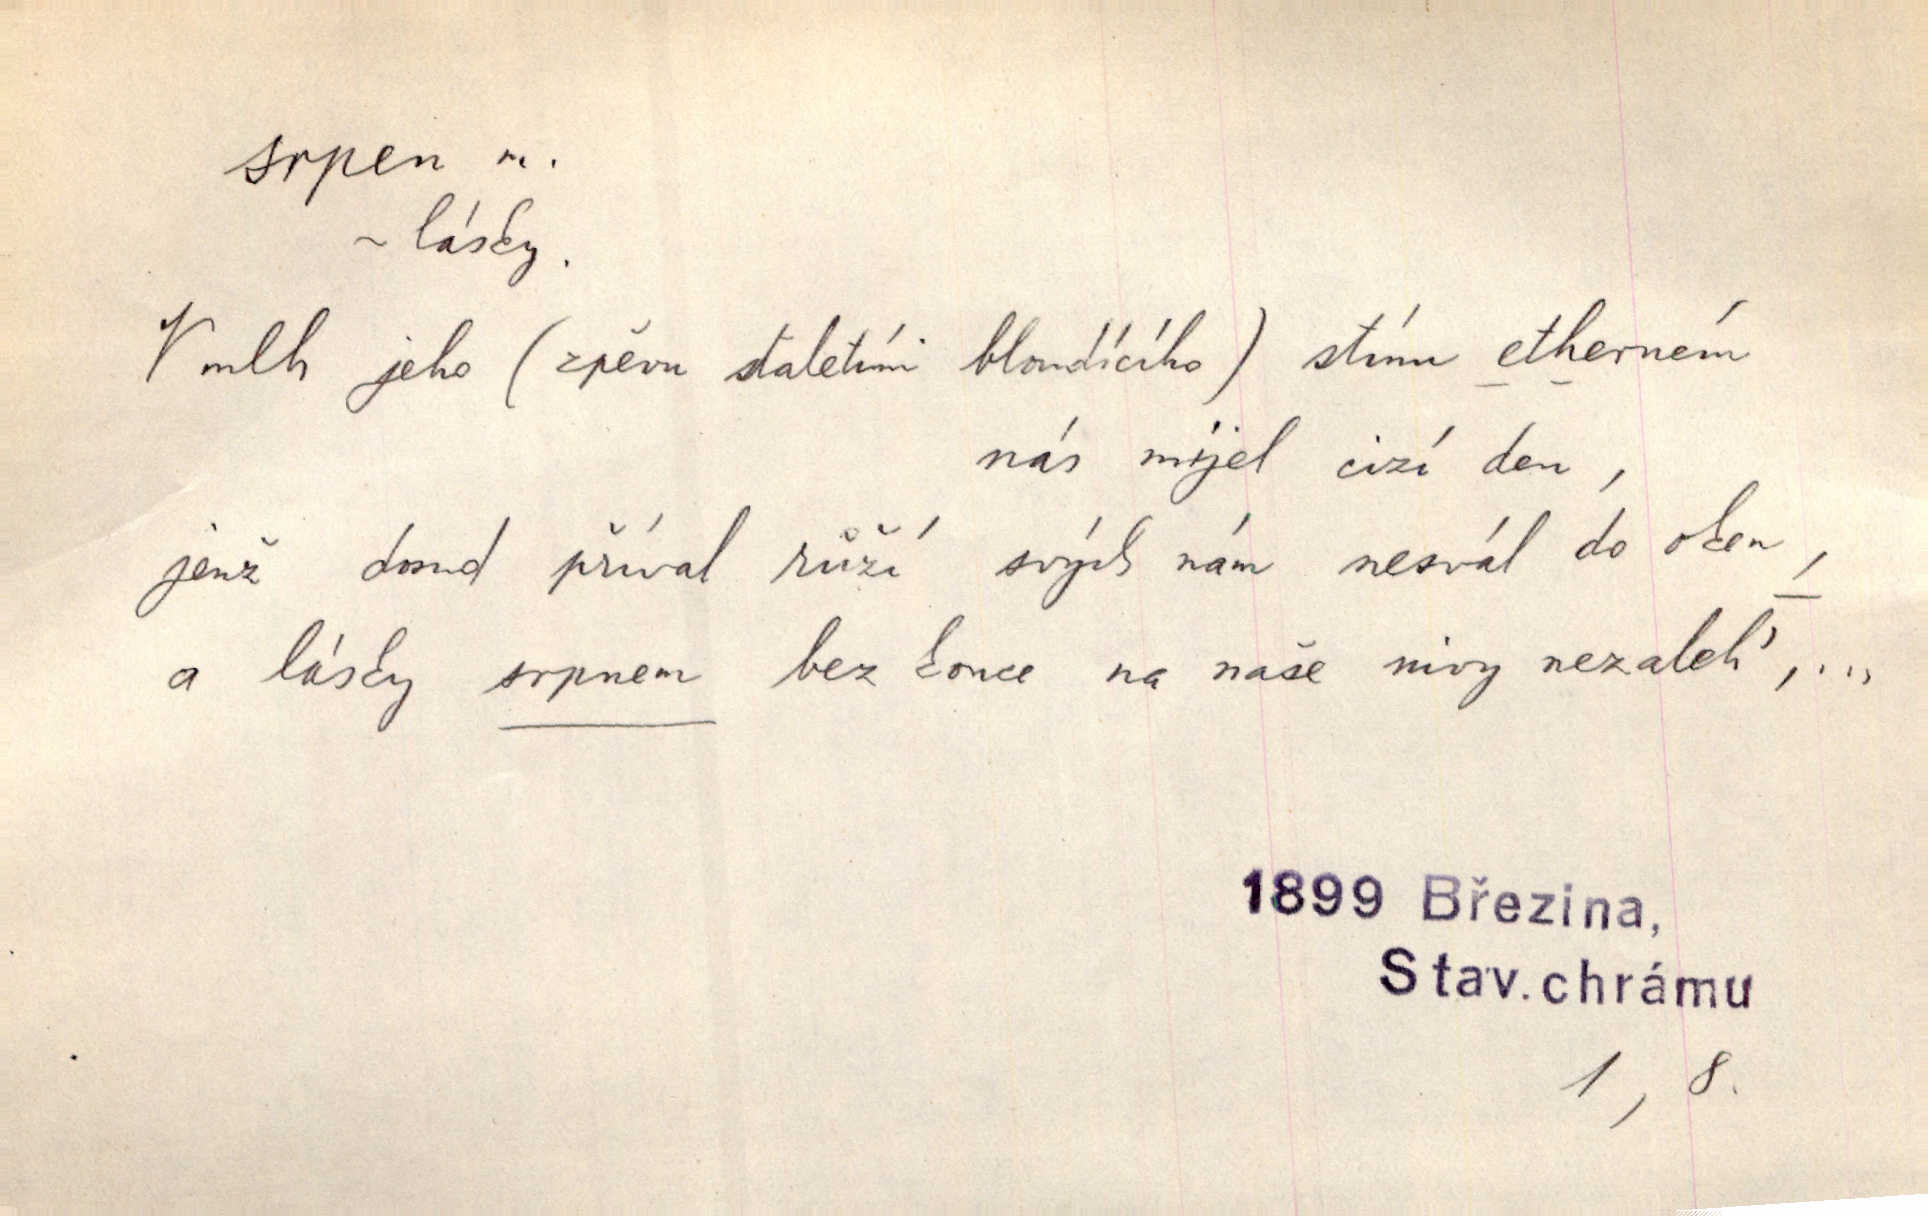 srpen m.
~ lásky.
V mlh jeho (zpěvu staletími bloudícího) stínu etherném
nás míjel cizí den,
jenž dosud příval růží svých nám nesvál do oken,
a lásky srpnem bez konce na naše nivy nezaleh', ...,
1899 Březina,
Stav. chrámu
1, 8.